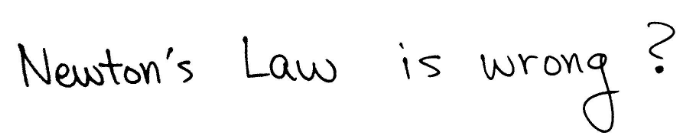 Newton's Law is wrong?